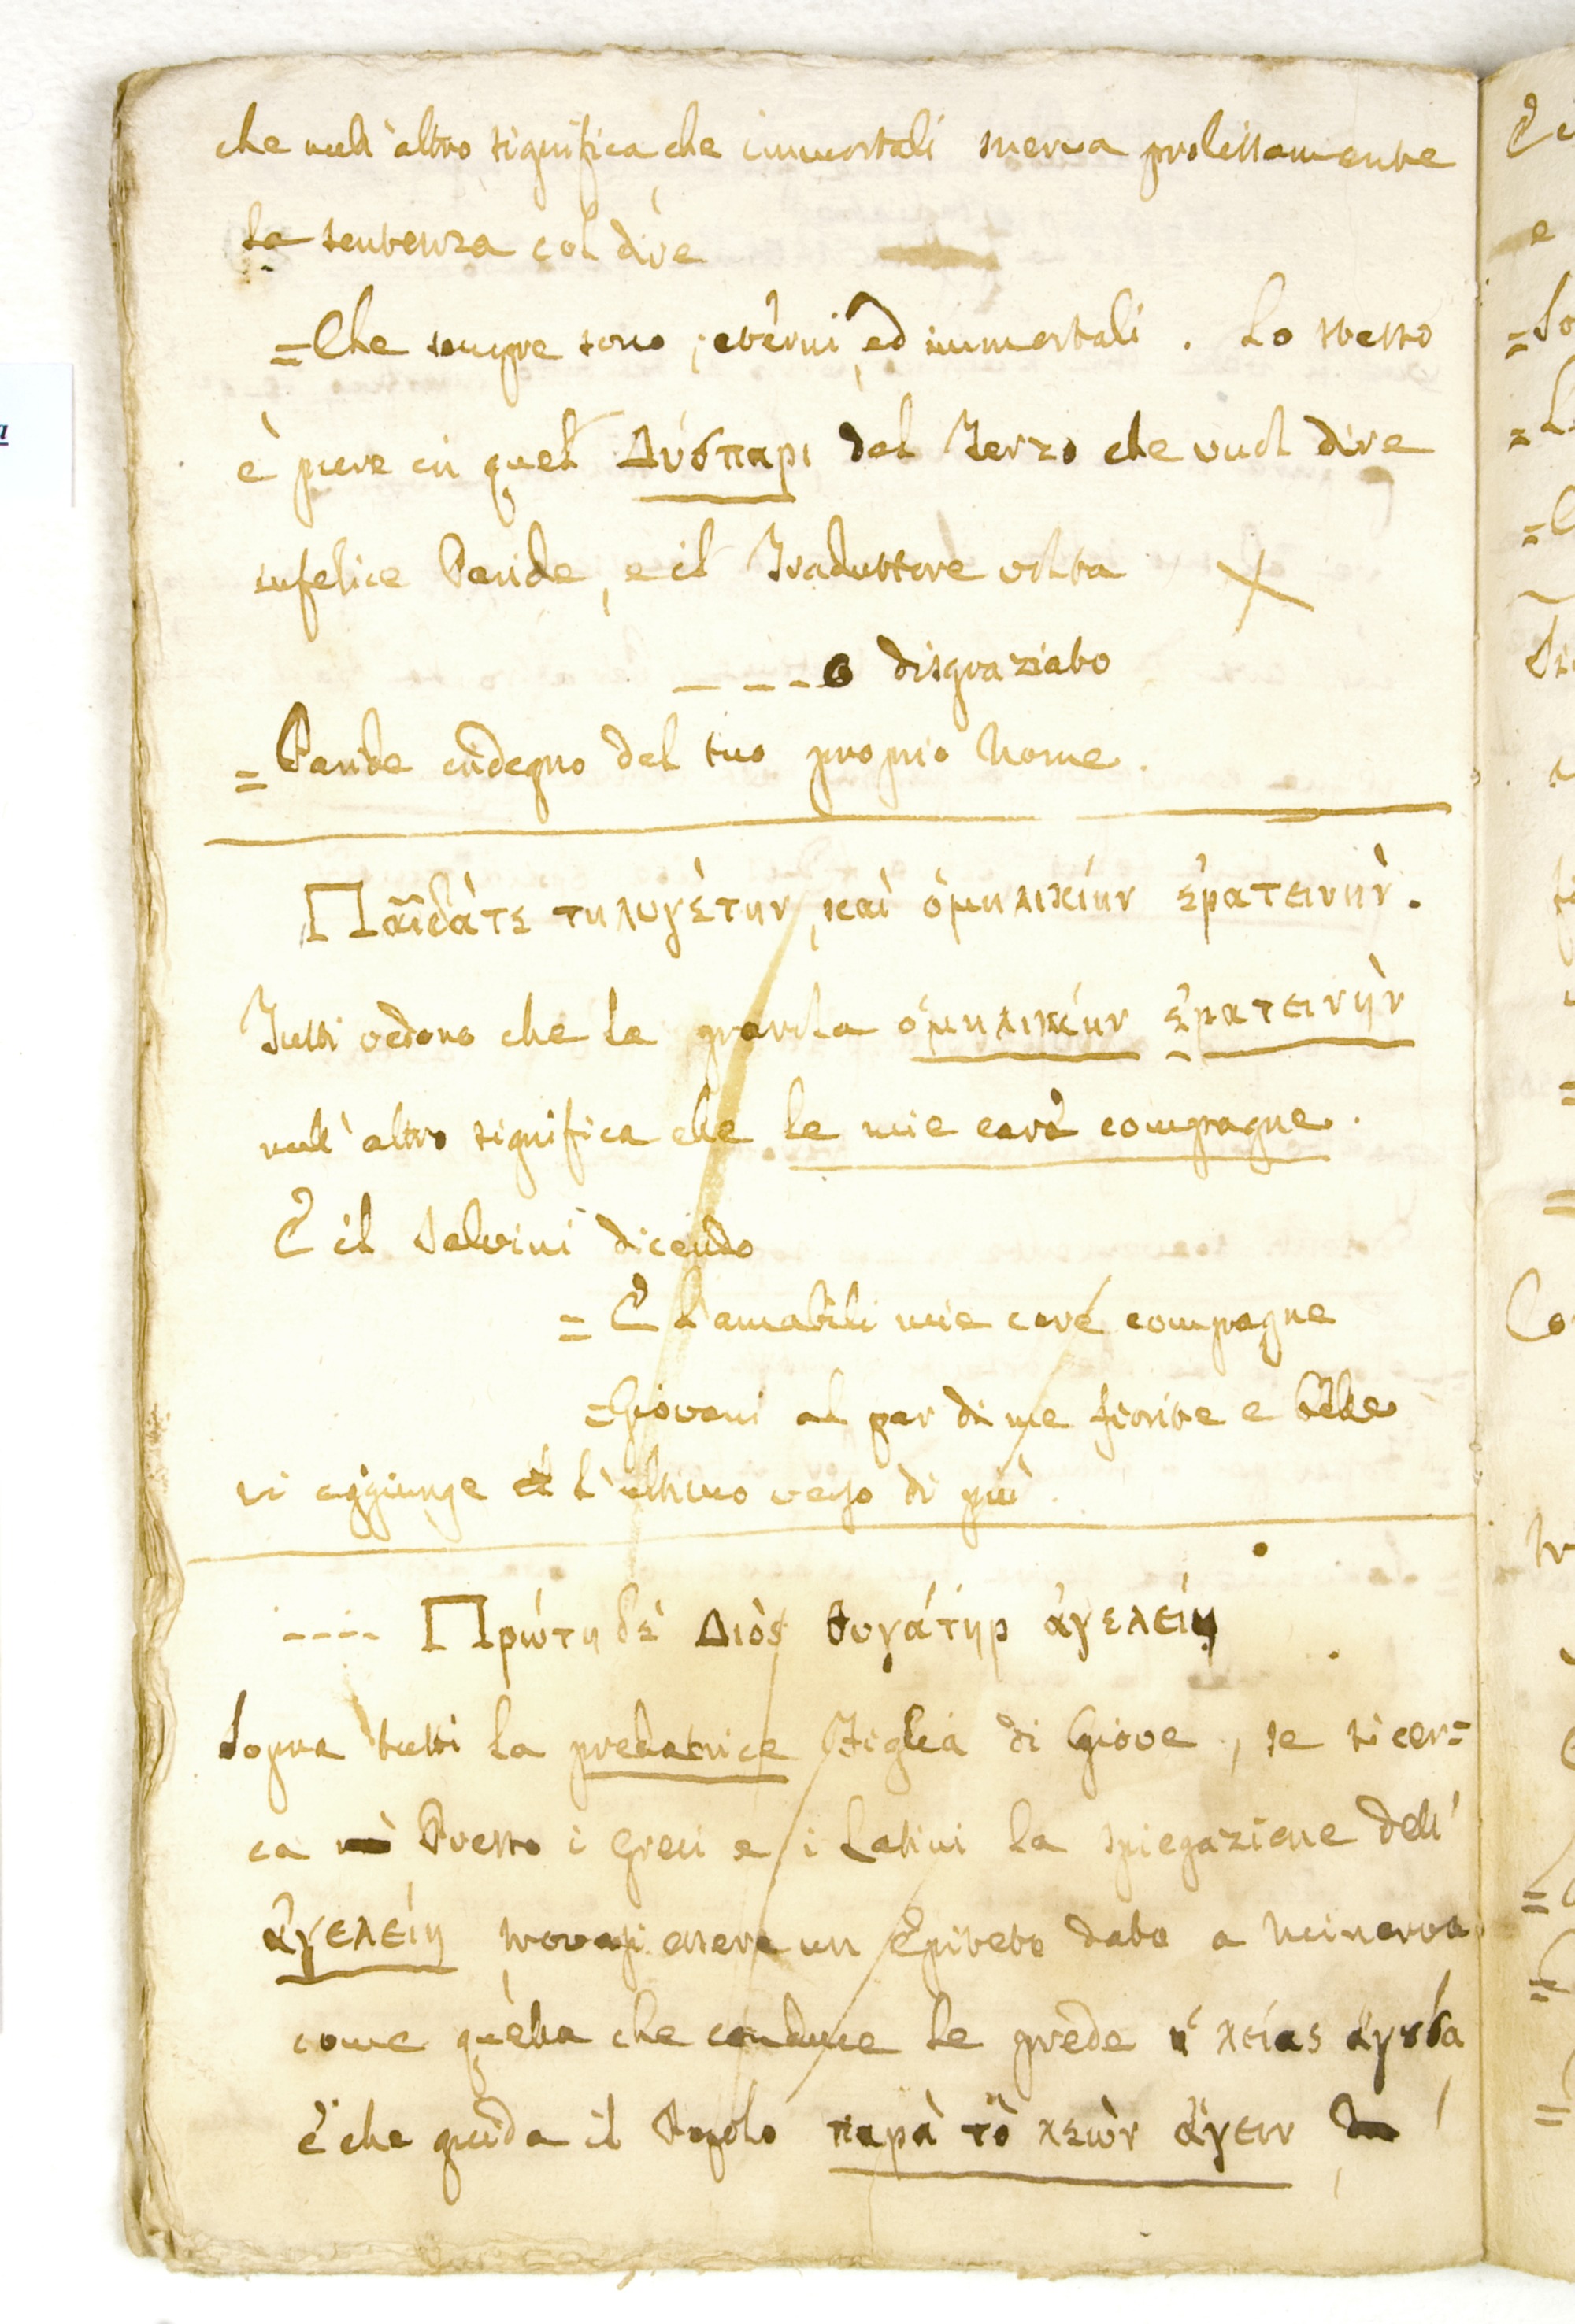 che null'altro significa che immortali snerva prolissamente
la sentenza col dire
= Che sempre sono, eterni, ed immortali. Lo stesso
è pure in quel Δύσπαρι del Terzo che vuol dire
infelice Paride, e il Traduttore volta
---- o disgraziato
= Paride indegno del tuo proprio Nome.
Παῖδάτε τηλυγέτην, καὶ ὁμηλικίην ἐρατεινὴν.
Tutti vedono che la parola ὁμηλικίην ἐρατεινὴν
null'altro significa che le mie care compagne.
E il Salvini dicendo
= E l'amabili mie care compagne
= Giovani al par di me fiorite e belle
vi aggiunge l'ultimo verso di più.
---- Πρώτη δὲ Διὸς θυγάτηρ ἀγελείη
Sopra tutti la predatrice Figlia di Giove, se si cer=
ca Presso i Greci e i Latini la spiegazione dell'
ἀγελείη trovasi essere un Epiteto dato a Minerva
come quella che conduce le prede λείας ἀγουσα
e che guida il Popolo παρὰ τὸ λεὼν ἄγειν